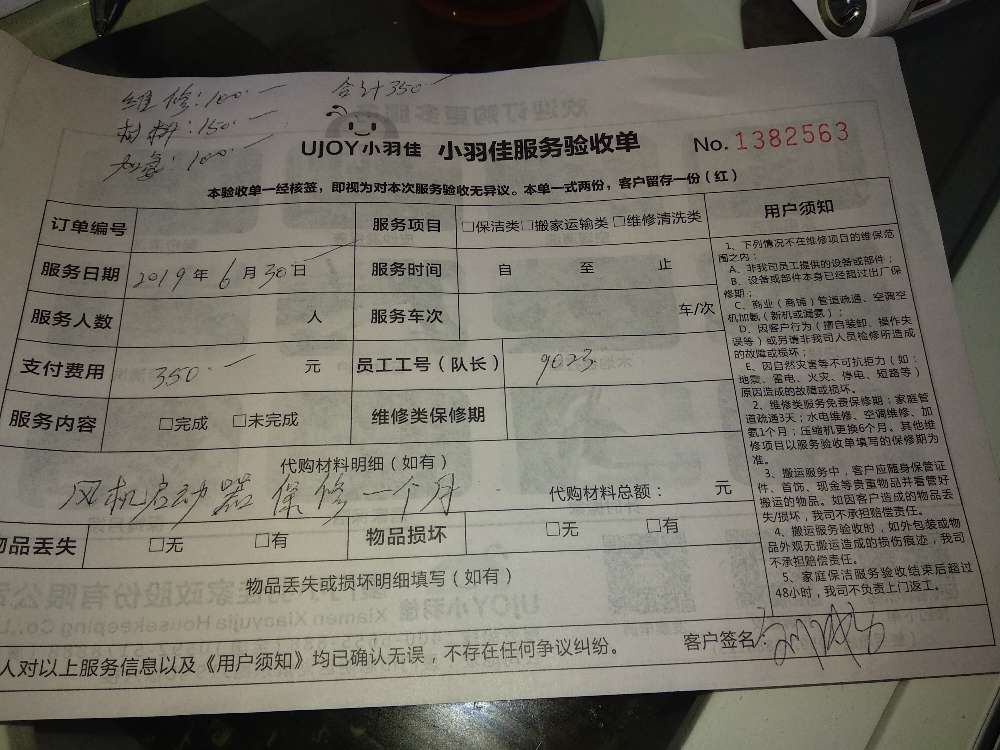 维修:100.一 合计350一
材料:150.一
加氨:100.一
UJOY小羽佳 小羽佳服务验收单 No.1382563
本验收单一经核签，即视为对本次服务验收无异议。本单一式两份，客户留存一份（红）
订单编号 服务项目 □保洁类 □搬家运输类 □维修清洗类 用户须知
服务日期 2019年6月30日 服务时间 自 至 止
服务人数 人 服务车次 车/次
支付费用 350.一 元 员工工号（队长） 9023
服务内容 □完成 □未完成 维修类保修期
代购材料明细（如有）
风机启动器保修一个月 代购材料总额： 元
物品丢失 □无 □有 物品损坏 □无 □有
物品丢失或损坏明细填写（如有）
1、下列情况不在维修项目的维保范
围之内：
A、非我司员工提供的设备或部件；
B、设备或部件本身已经超过出厂保
修期；
C、商业（商铺）管道疏通、空调空
机加氨（新机或漏氨）；
D、因客户行为（擅自装卸、操作失
误等）或另请非我司人员检修所造成
的故障或损坏；
E、因自然灾害等不可抗拒力（如：
地震、雷电、火灾、停电、短路等）
原因造成的故障或损坏。
2、维修类服务免费保修期：家庭管
道疏通3天；水电维修、空调维修、加
氨1个月；压缩机更换6个月。其他维
修项目以服务验收单填写的保修期为
准。
3、搬运服务中，客户应随身保管证
件、首饰、现金等贵重物品并看管好
搬运的物品。如因客户造成的物品丢
失/损坏，我司不承担赔偿责任。
4、搬运服务验收时，如外包装或物
品外观无搬运造成的损伤痕迹，我司
不承担赔偿责任。
5、家庭保洁服务验收结束后超过
48小时，我司不负责上门返工。
人对以上服务信息以及《用户须知》均已确认无误，不存在任何争议纠纷。 客户签名：